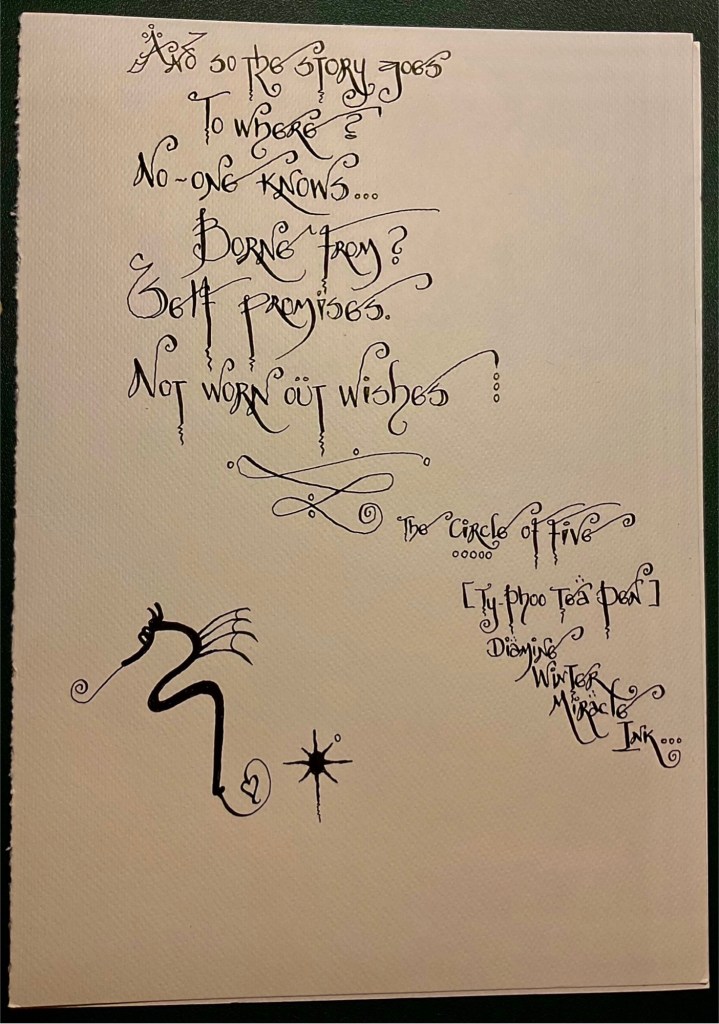 And so the story goes
To where?
No-one knows...
Borne from?
Self promises.
Not worn oüt wishes
The Circle of Five
[Ty-Phoo Tea Pen]
Diamine
Winter
Miracle
Ink...